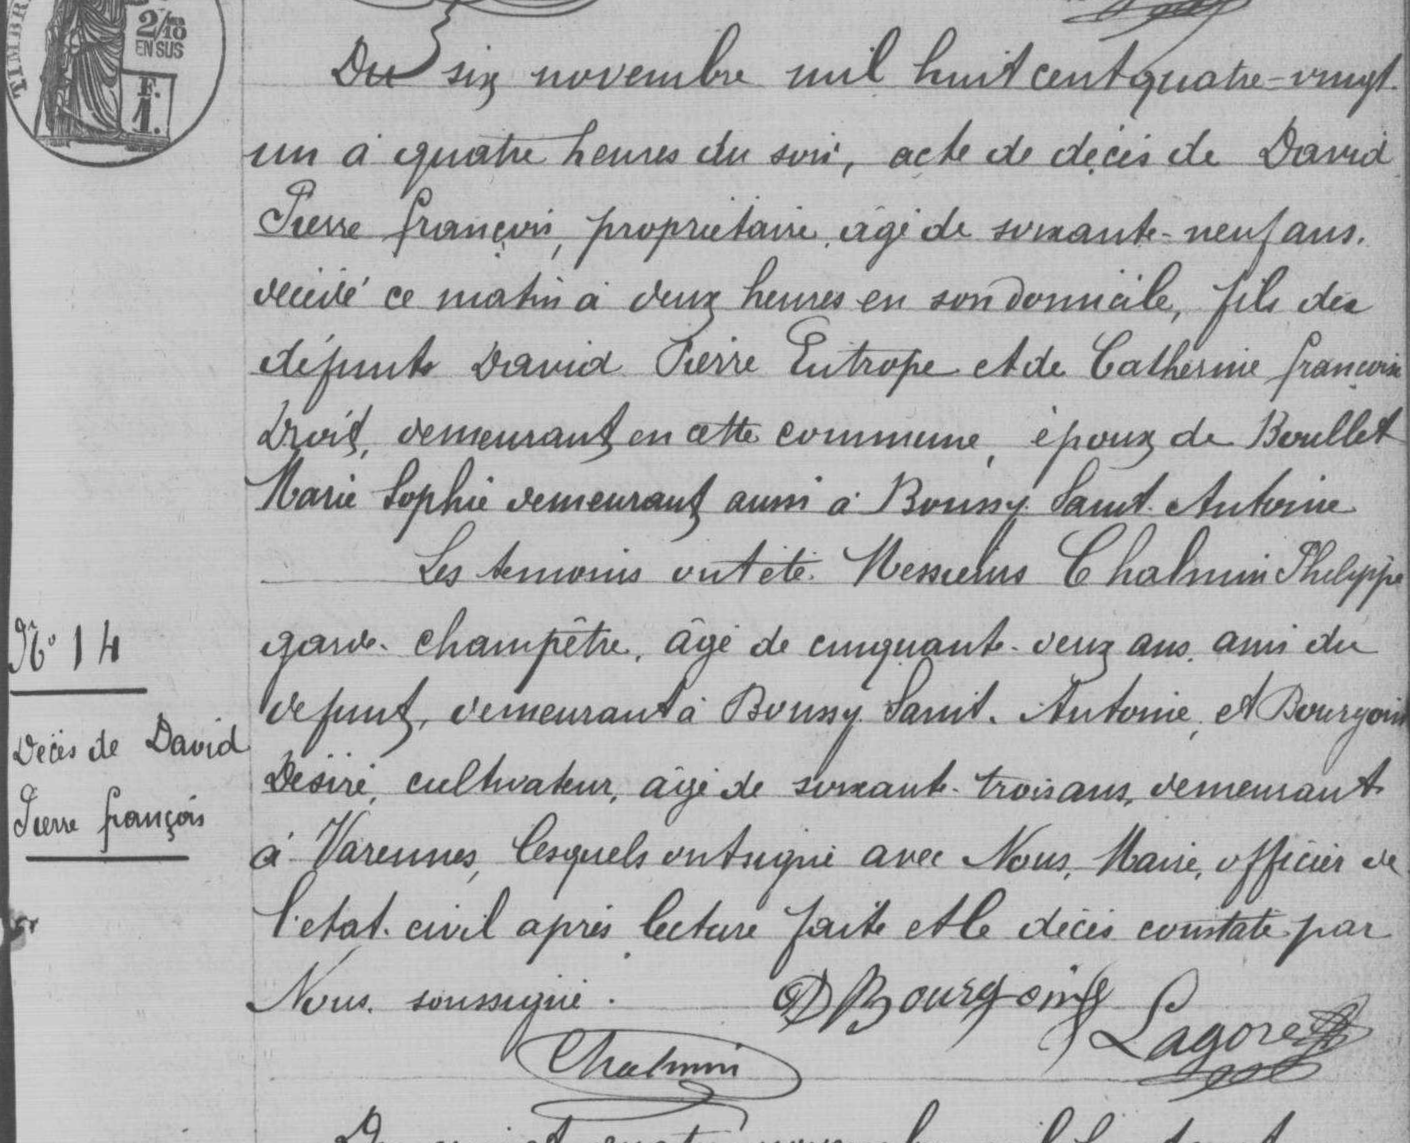 TIMBR
2/10
EN SUS
F.
1.
Du six novembre mil huit cent quatre-vingt-
un à quatre heures du soir, acte de décès de David
Pierre françois, propriétaire, âgé de soixante-neuf ans.
décédé ce matin à deux heures en son domicile, fils des
défunts David Pierre Eutrope et de Catherine françoise
Droit, demeurant en cette commune, époux de Boullet
Marie Sophie demeurant aussi à Boussy Saint-Antoine
Les temoins ont été Messieurs Chalmin Philippe
garde-champêtre, âgé de cinquante-deux ans, ami du
defunt, demeurant à Boussy-Saint-Antoine, et Bourgoin
Désiré, cultivateur, âgé de soixante-trois ans, demeurant
à Varennes, lesquels ont signé avec Nous, Maire, officier de
l'etat-civil après lecture faite et le décès constaté par
Nous soussigné.
D Bourgoing
Lagore
Chalmin
No 14
Décès de David
Pierre françois